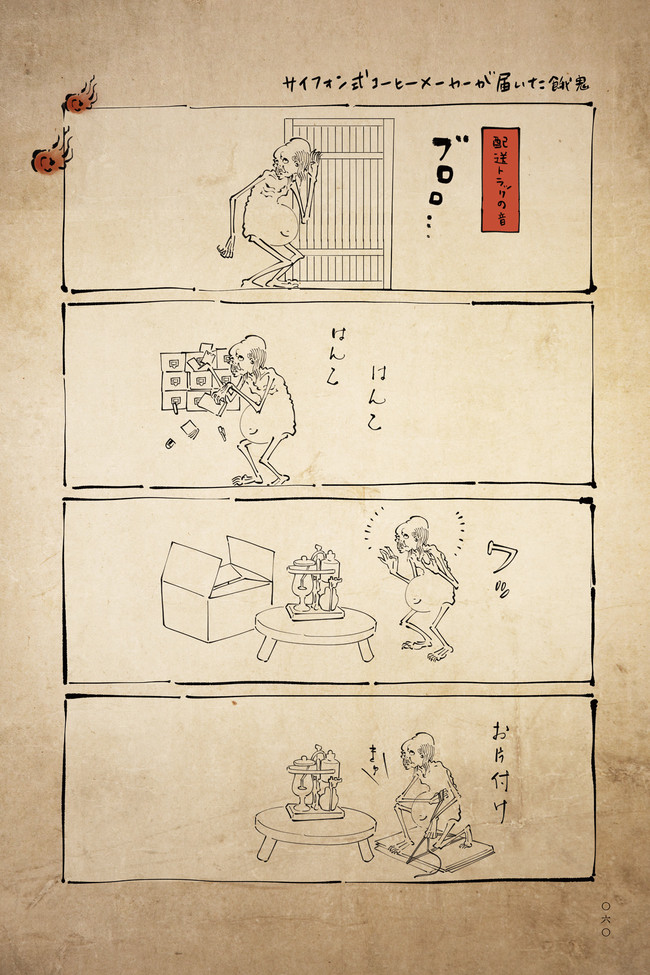 サイフォン式コーヒーメーカーが届いた餓鬼
配送トラックの音
ブロロ…
はんこ
はんこ
ワッ
お片付け
まゅ
〇六〇